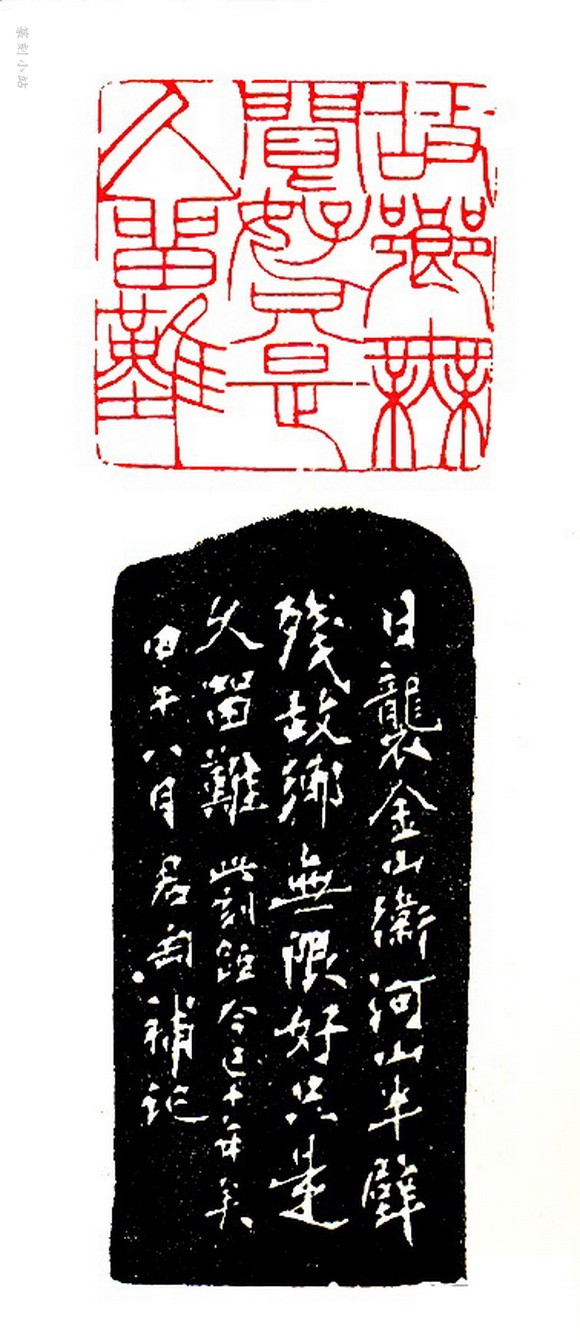 篆刻小站
故鄉無
閒好只是
久留難
日襲金山衛河山半壁
殘故鄉無限好只是
久留難 此刻距今已十年矣
甲午八月 君匋補記